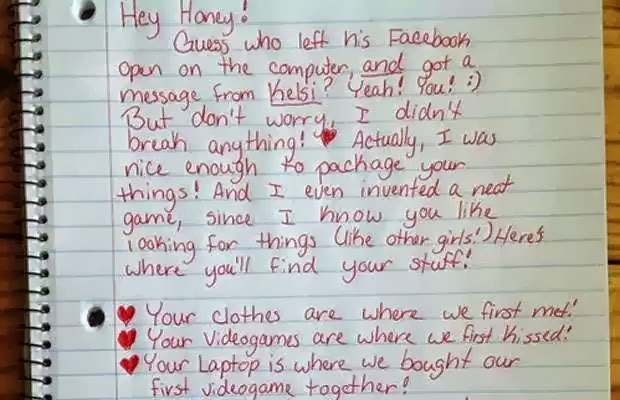 Hey Honey!
Guess who left his Facebook
open on the computer, and got a
message from Kelsi? Yeah! You! :)
But don't worry, I didn't
break anything! ♥ Actually, I was
nice enough to package your
things! And I even invented a neat
game, since I know you like
looking for things (like other girls!) Here's
where you'll find your stuff!
♥ Your clothes are where we first met!
♥ Your Videogames are where we first kissed!
♥ Your Laptop is where we bought our
first videogame together!